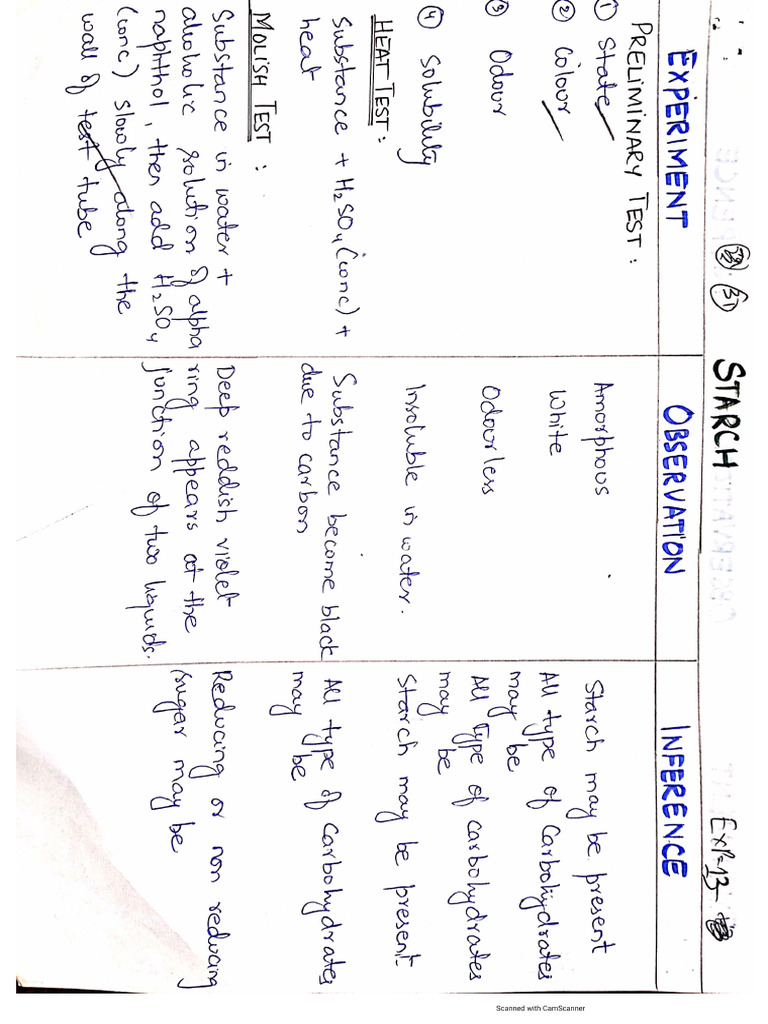 31 STARCH Exp-13
EXPERIMENT OBSERVATION INFERENCE
PRELIMINARY TEST:
① State Amorphous Starch may be present
② Colour White All type of Carbohydrates
may be
③ Odour Odourless All Type of carbohydrates
may be
④ Solubility Insoluble in water. Starch may be present
HEAT TEST:
Substance + H₂SO₄(conc) + Substance become black All type of Carbohydrates
heat due to carbon may be
MOLISH TEST:
Substance in water + Deep reddish violet Reducing or non reducing
alcoholic solution of alpha ring appears at the sugar may be
naphthol, then add H₂SO₄ junction of two liquids.
(conc) slowly along the
wall of test tube
Scanned with CamScanner